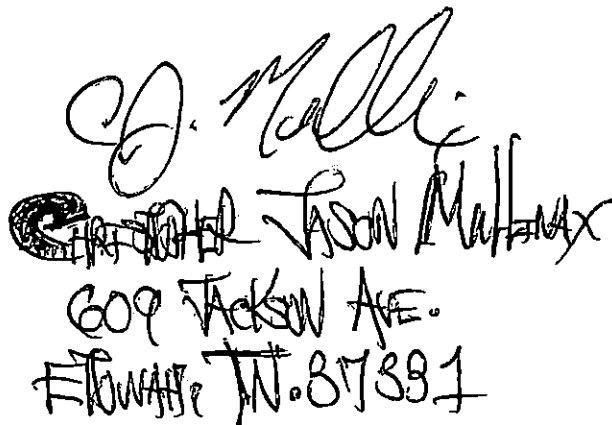 CJ. Mulli
Christopher Jason Mullenax
609 Jackson Ave.
Etowah, TN. 37331